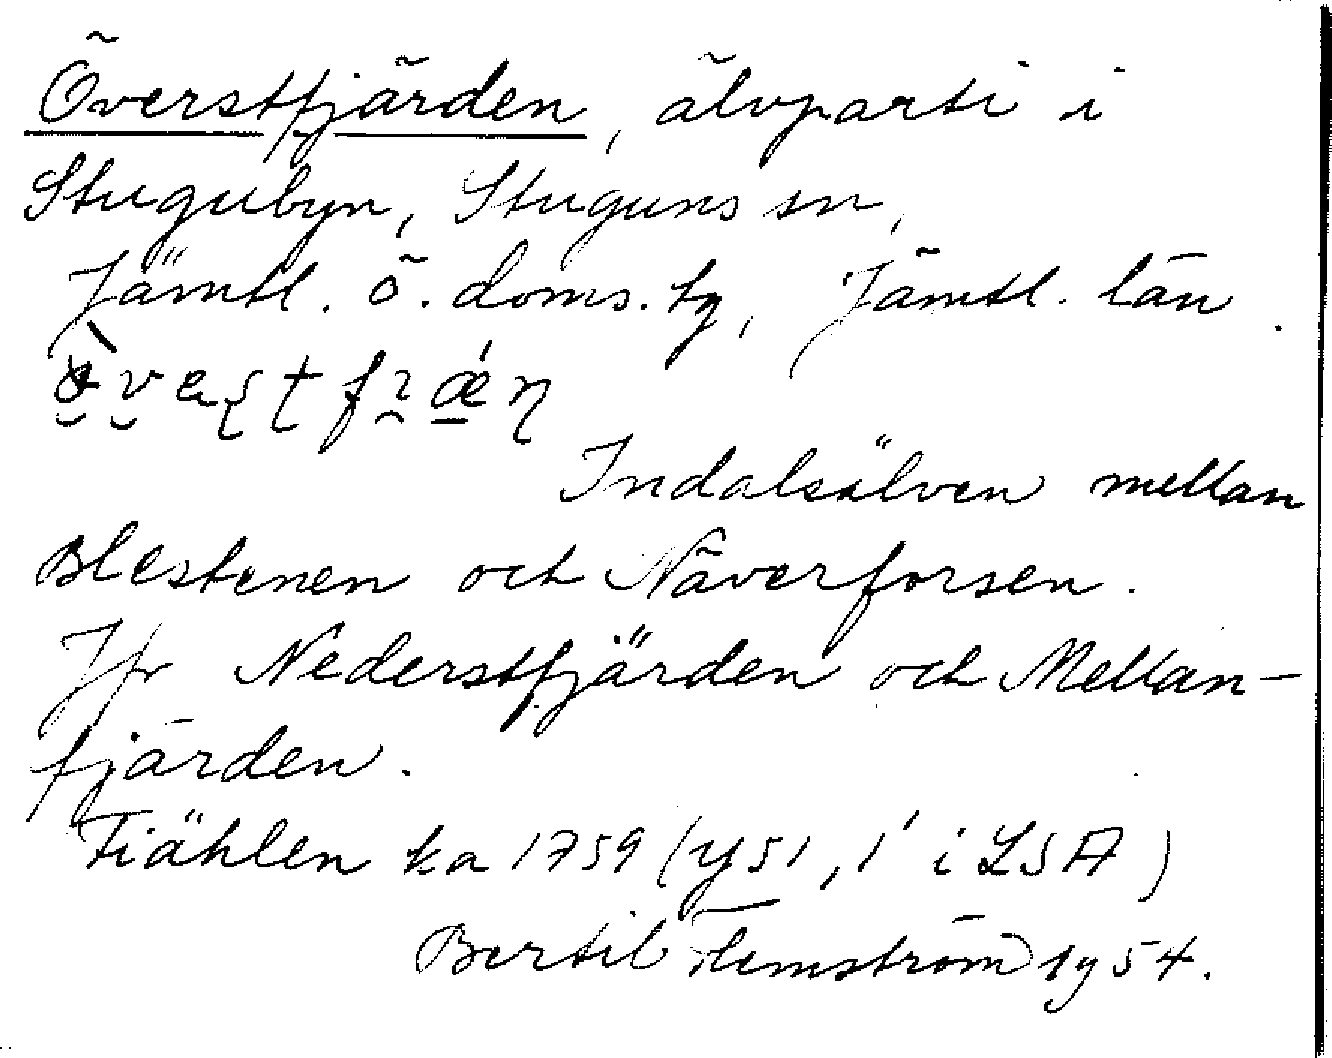 Överstfjärden, älvparti i
Stugubyn, Stuguns sn,
Jämtl. ö. doms. tg, Jämtl. län.
Indalsälven mellan
Blestenen och Näverforsen.
Jfr Nederstfjärden och Mellan-
fjärden.
Fiählen ka 1759 (y51, 1 i LSA)
Bertil Flemström 1954.